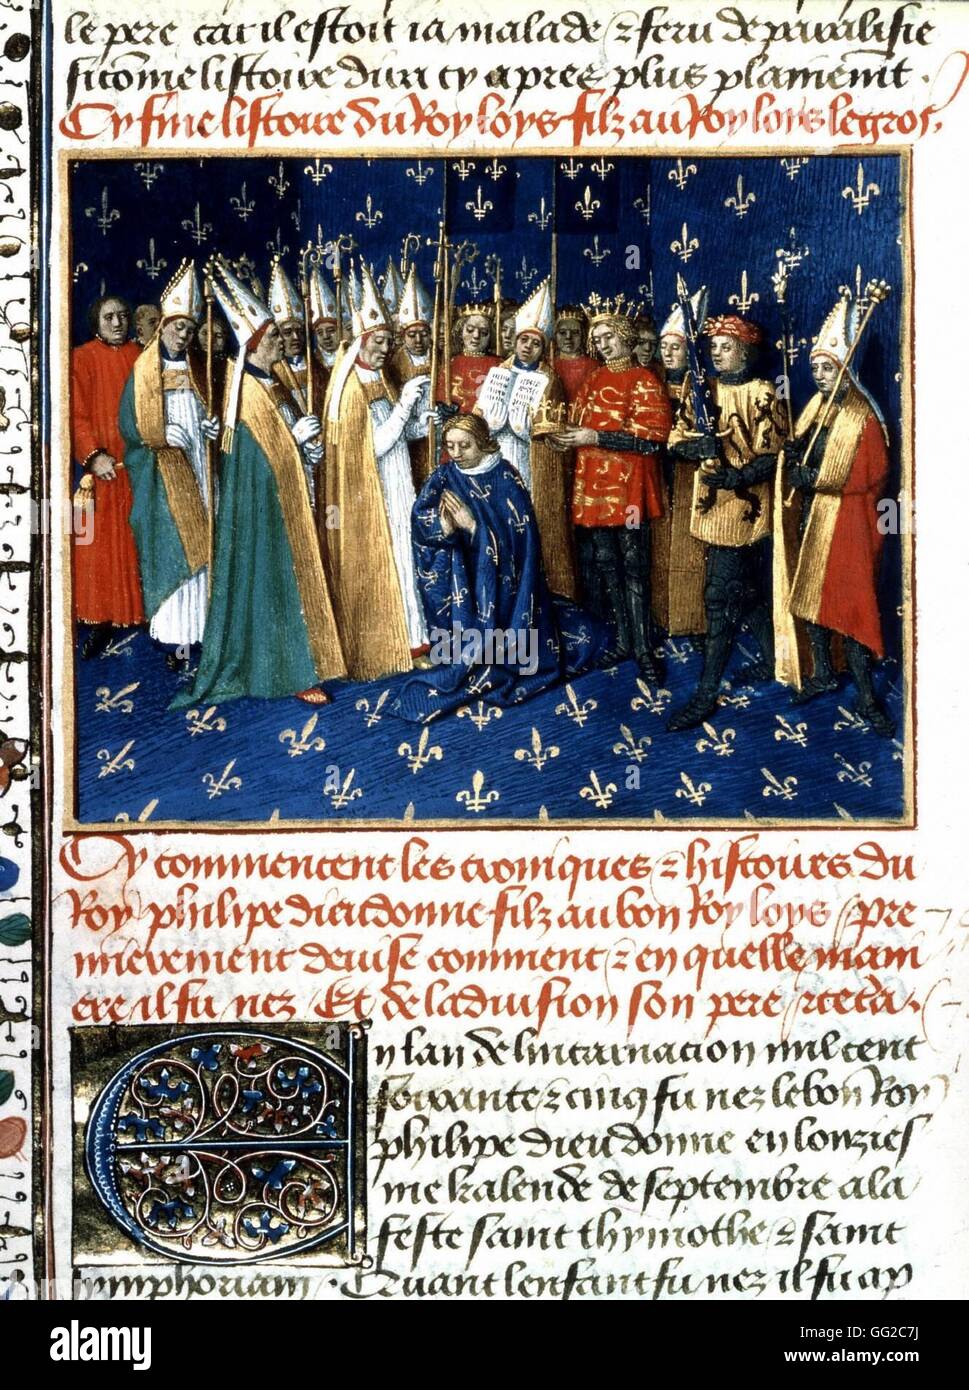 le pere car il estoit ia malade & feru de paralisie
si cõme listoire dira cy apres plus plainemt .
Cy fine listoire du Roy loys filz au Roy loys le gros .
Cy commencent les croniques & histoires du
Roy philipe dieudonne filz au bon Roy loys / pre
mierement devise comment & en quelle mani
ere il fu nez / Et de la division son pere / &cetera .
En lan de lincarnacion mil cent
soixante & cinq fu nez le bon Roy
philipe dieudonne en lonzies
me kalende de septembre a la
feste saint thymothe & saint
symphorian . Quant lenfant fu nez il fu ap
alamy stock photo
alamy
Image ID: GG2C7J
www.alamy.com